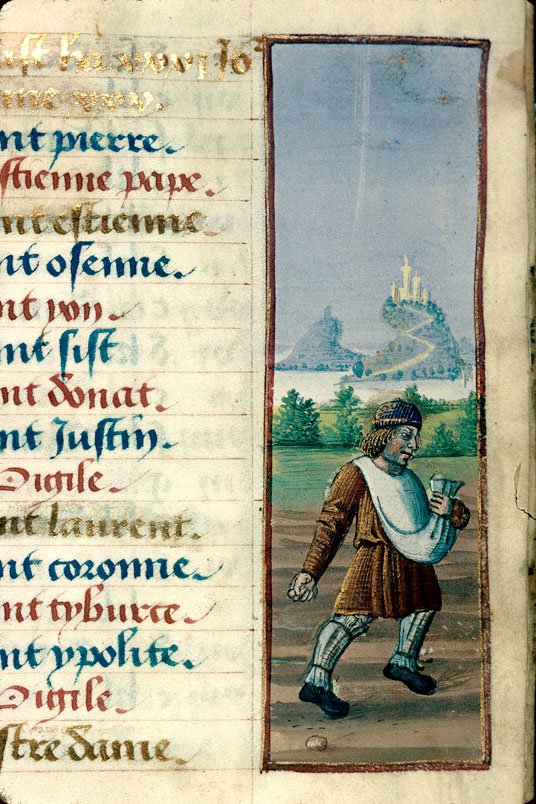 ust ha xxxi io
une xxx.
nt pierre.
stienne pape.
nt estienne
nt osenne.
nt yon
nt sist
nt donat.
nt Justin.
Vigile.
nt laurent.
nt coronne.
nt tyburce
nt ypolite.
Vigile
stre dame.